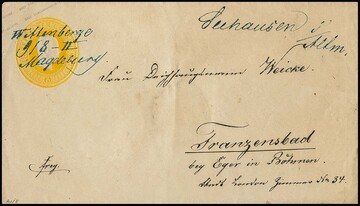 Wittenberge
9/8 - II
Magdeburg
Seehausen i/
Altm.
Frau Weicke.
Franzensbad
bey Eger in Böhmen.
Stadt London Zimmer No 34.